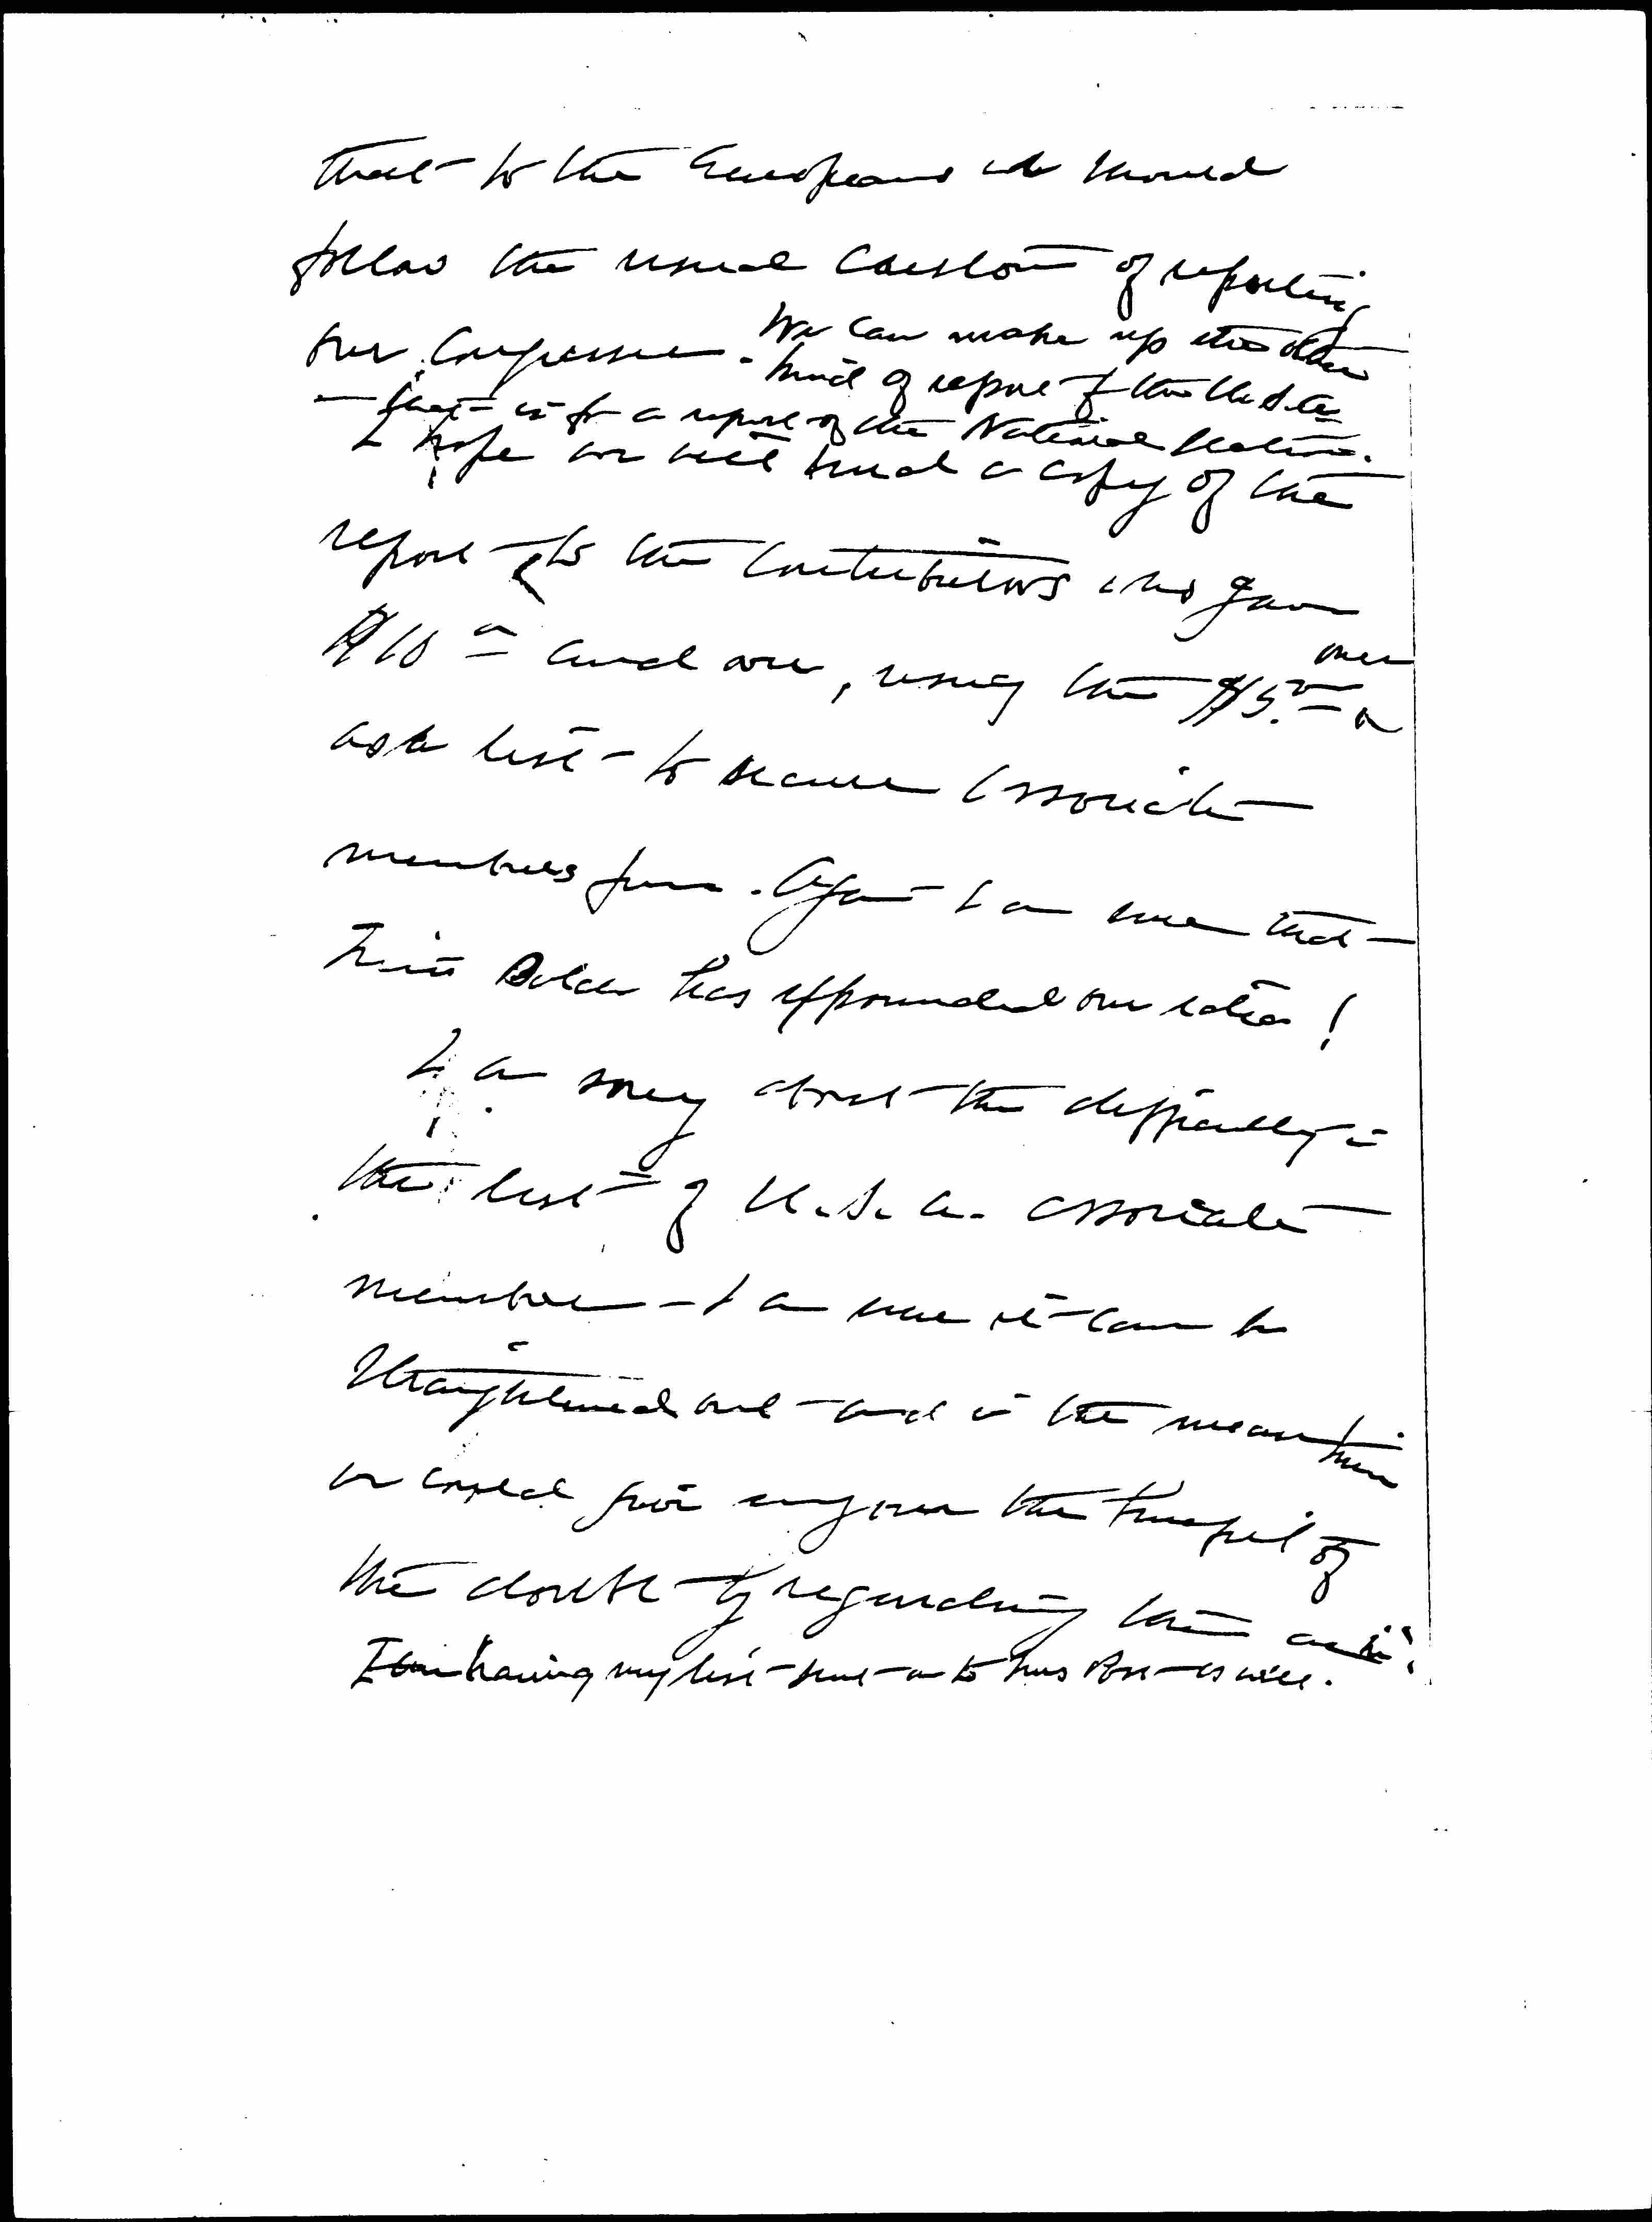 that to the Europeans we should
follow the usual custom of reporting
our Congresses. We can make up the other
kind of report for the U.S.A.
- that is for a report of the National Section.
I hope we will send a copy of the
report to the contributors who gave
$10 and over, using the $5. ones
as a list to secure associate
members from. Again I am sure that
Miss Balch has expounded our ideas!
I am sorry about the difficulty in
the list of U.S.A. associate
members - I am sure it can be
straightened out and in the meantime
we could give anyone the benefit of
the doubt regarding the
I am having my list sent on to Miss as well.